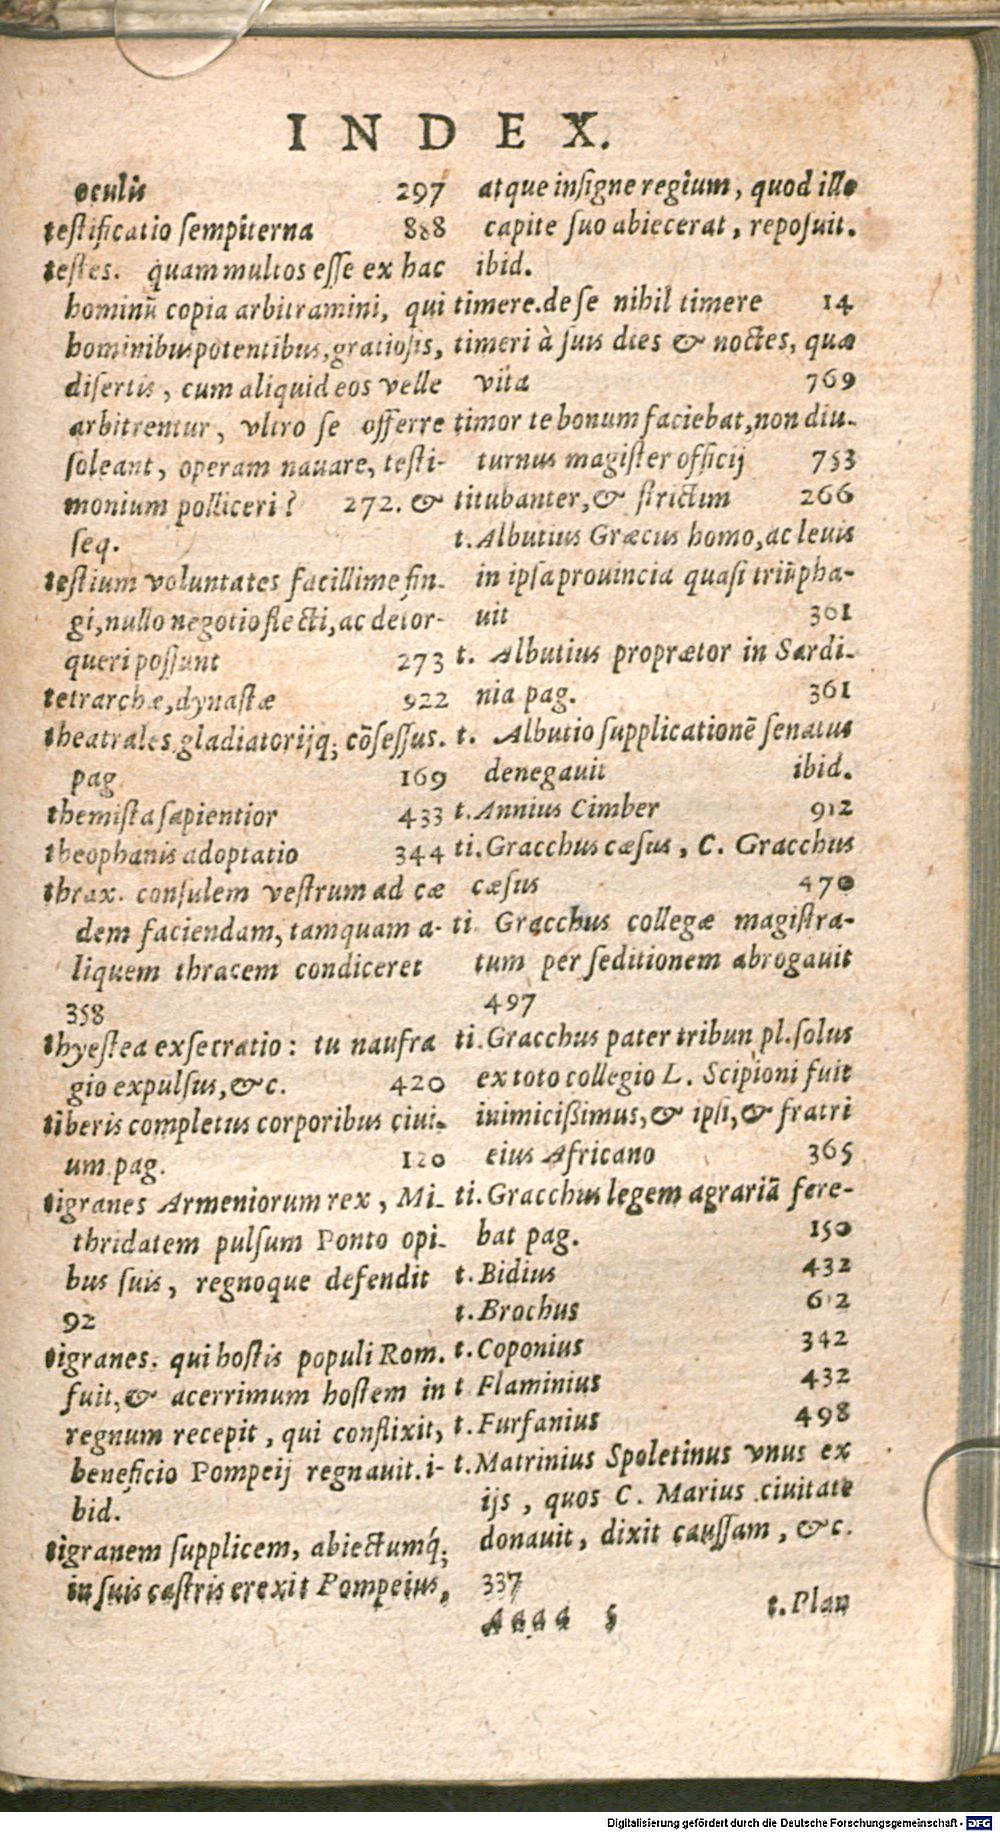 INDEX.
oculis 297
testificatio sempiterna 888
testes. quam multos esse ex hac
hominū copia arbitramini, qui
hominibus potentibus, gratiosis,
disertis, cum aliquid eos velle
arbitrentur, vltro se offerre
soleant, operam nauare, testi-
monium polliceri? 272. &
seq.
testium voluntates facillime fin-
gi, nullo negotio flecti, ac detor-
queri possunt 273
tetrarchæ, dynastæ 922
theatrales gladiatorijq; cōsessus.
pag 169
themista sapientior 433
theophanis adoptatio 344
thrax. consulem vestrum ad cæ
dem faciendam, tamquam a-
liquem thracem condiceret
358
thyestea exsecratio: tu naufra
gio expulsus, &c. 420
tiberis completus corporibus ciui-
um. pag. 120
tigranes Armeniorum rex, Mi-
thridatem pulsum Ponto opi-
bus suis, regnoque defendit
92
tigranes. qui hostis populi Rom.
fuit, & acerrimum hostem in
regnum recepit, qui conflixit,
beneficio Pompeij regnauit. i-
bid.
tigranem supplicem, abiectumq́;
in suis castris erexit Pompeius,
atque insigne regium, quod ille
capite suo abiecerat, reposuit.
ibid.
timere. de se nihil timere 14
timeri à suis dies & noctes, quæ
vita 769
timor te bonum faciebat, non diu-
turnus magister officij 753
titubanter, & strictim 266
t. Albutius Græcus homo, ac leuis
in ipsa prouincia quasi triūpha-
uit 361
t. Albutius proprætor in Sardi-
nia pag. 361
t. Albutio supplicationē senatus
denegauit ibid.
t. Annius Cimber 912
ti. Gracchus cæsus, C. Gracchus
cæsus 470
ti Gracchus collegæ magistra-
tum per seditionem abrogauit
497
ti. Gracchus pater tribun. pl. solus
ex toto collegio L. Scipioni fuit
inimicissimus, & ipsi, & fratri
eius Africano 365
ti. Gracchus legem agrariā fere-
bat pag. 150
t. Bidius 432
t. Brochus 612
t. Coponius 342
t Flaminius 432
t. Furfanius 498
t. Matrinius Spoletinus vnus ex
ijs, quos C. Marius ciuitate
donauit, dixit caussam, &c.
337
Aaaa 5 t. Plan
Digitalisierung gefördert durch die Deutsche Forschungsgemeinschaft - DFG